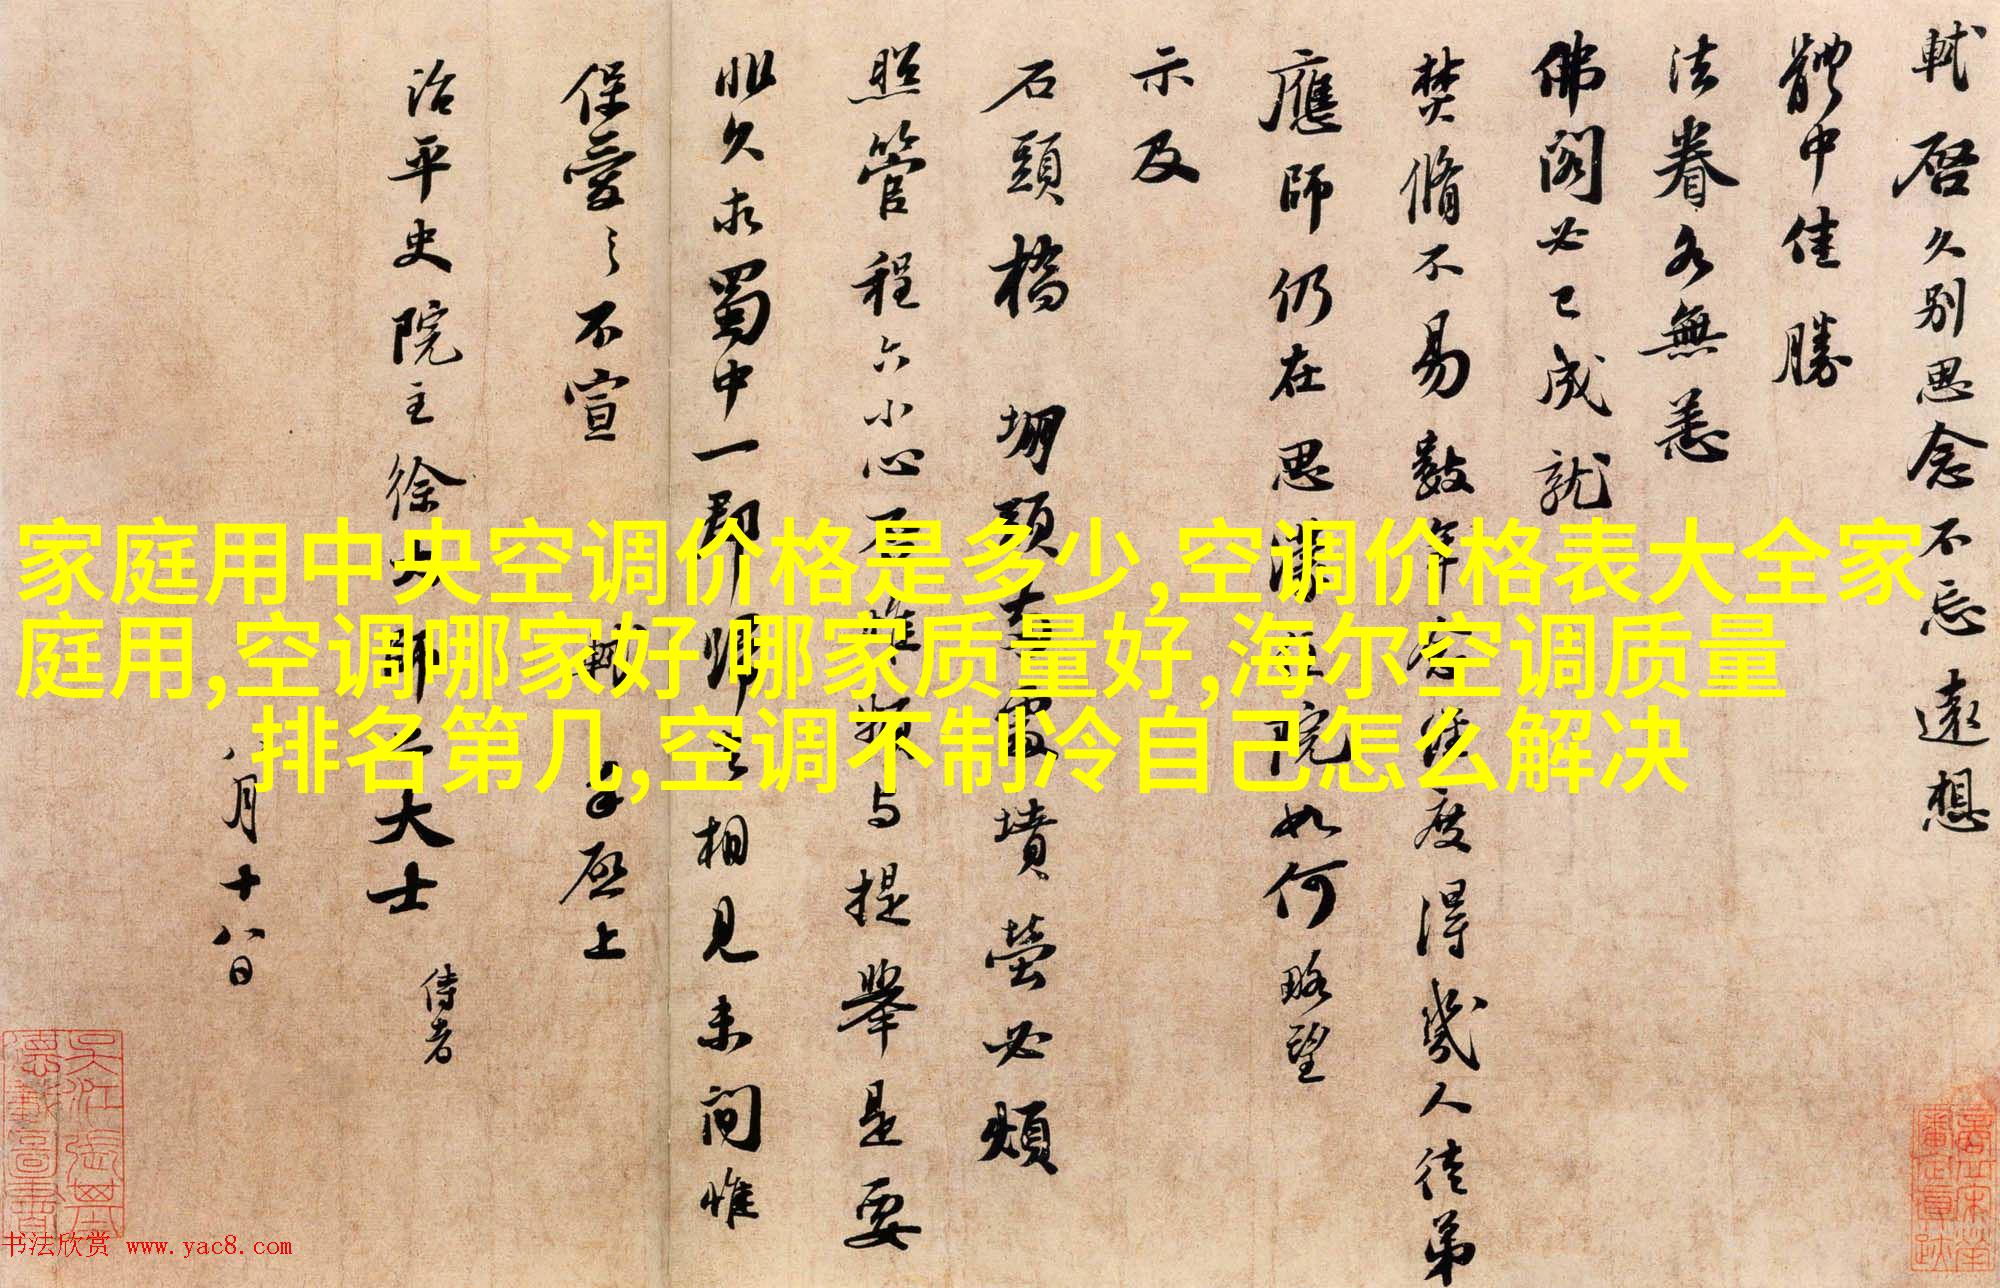 軾啓久别思念不忘遠想
體中佳勝
法眷各無恙
佛閣必已成就
焚脩不易數年
度得幾人徒弟
應師仍在思濛
院如何略望
示及
石頭橋 堋頭
墳塋必煩
照管程六小心否惟頻与提舉是要
非久求蜀中一郡歸去相見未間惟
保愛之不宣 軾手啓上
治平史院主徐大師二大士 侍者
八月十八日
家庭用中央空调价格是多少,空调价格表大全家
庭用,空调哪家好 哪家质量好,海尔空调质量
排名第几,空调不制冷自己怎么解决
书法欣赏 www.yac8.com